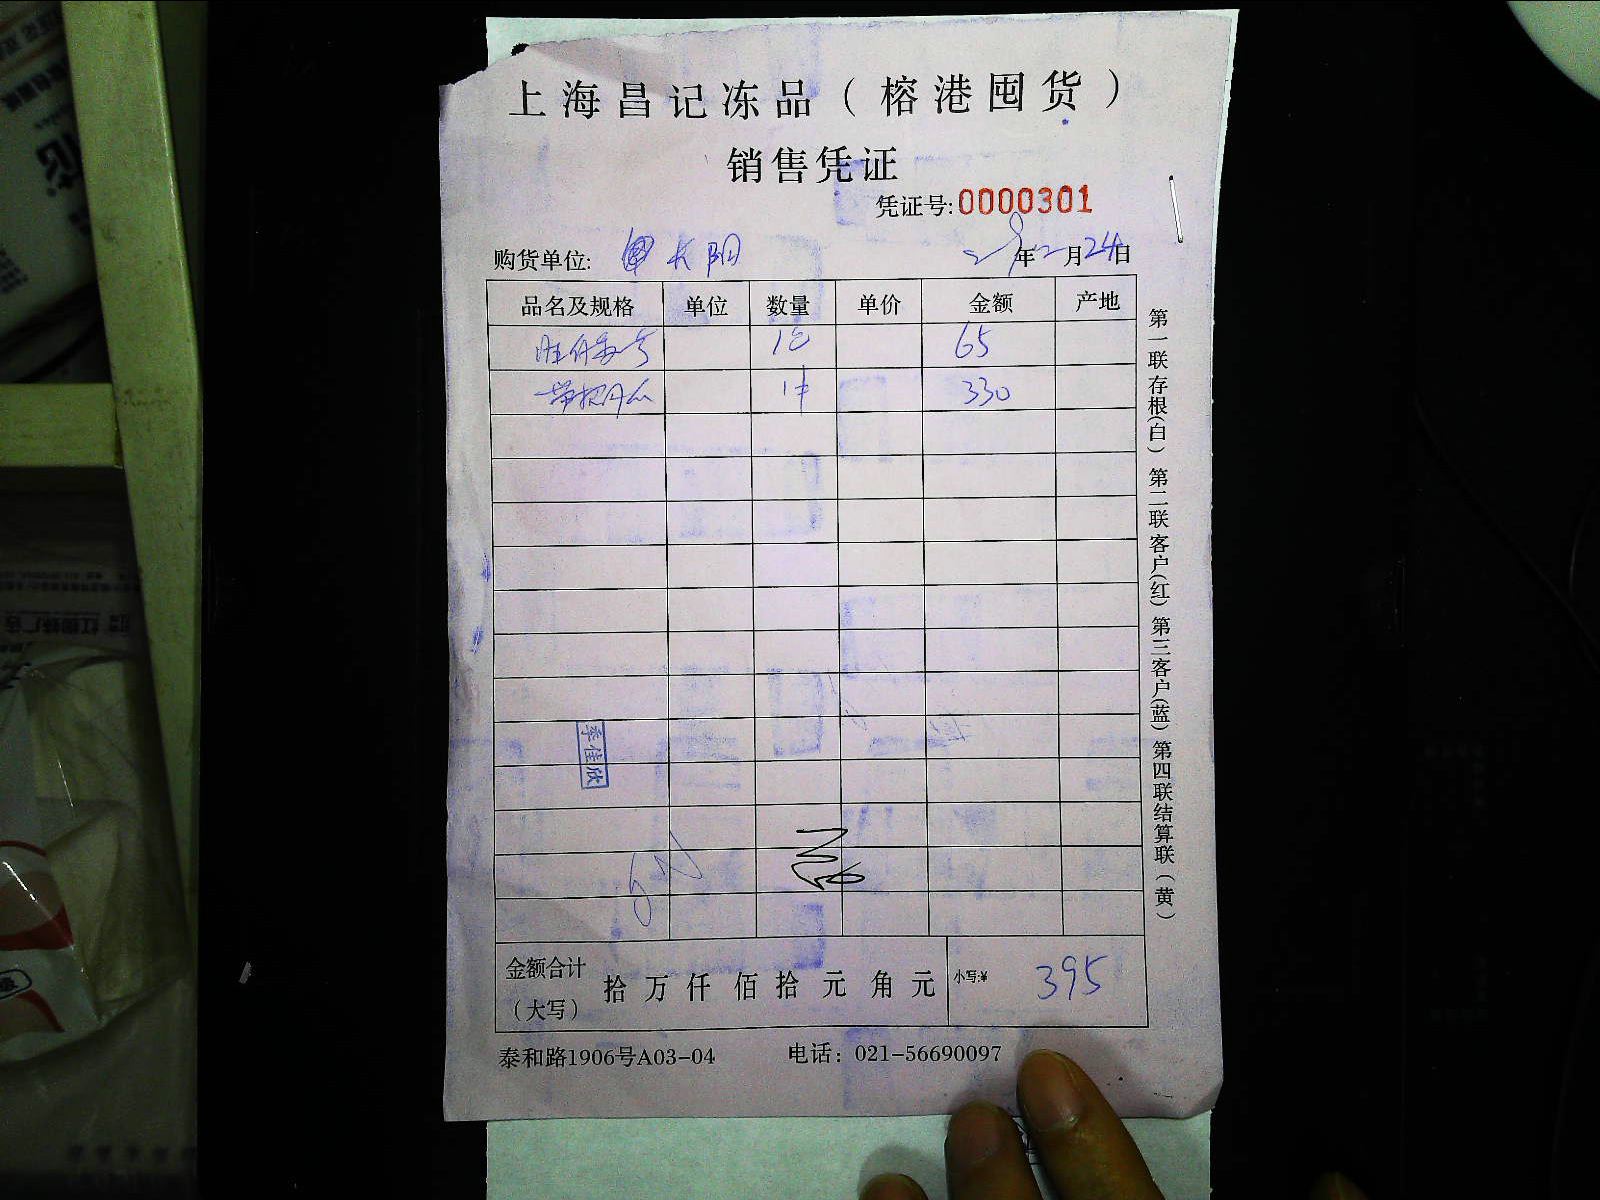 上海昌记冻品（榕港囤货）
销售凭证
凭证号:0000301
购货单位: 长阳 年2月24日
品名及规格 单位 数量 单价 金额 产地
1包 65
1件 330
季佳欣
金额合计（大写） 拾万仟佰拾元角元 小写:¥ 395
泰和路1906号A03-04 电话：021-56690097
第一联存根(白) 第二联客户(红) 第三客户(蓝) 第四联结算联(黄)